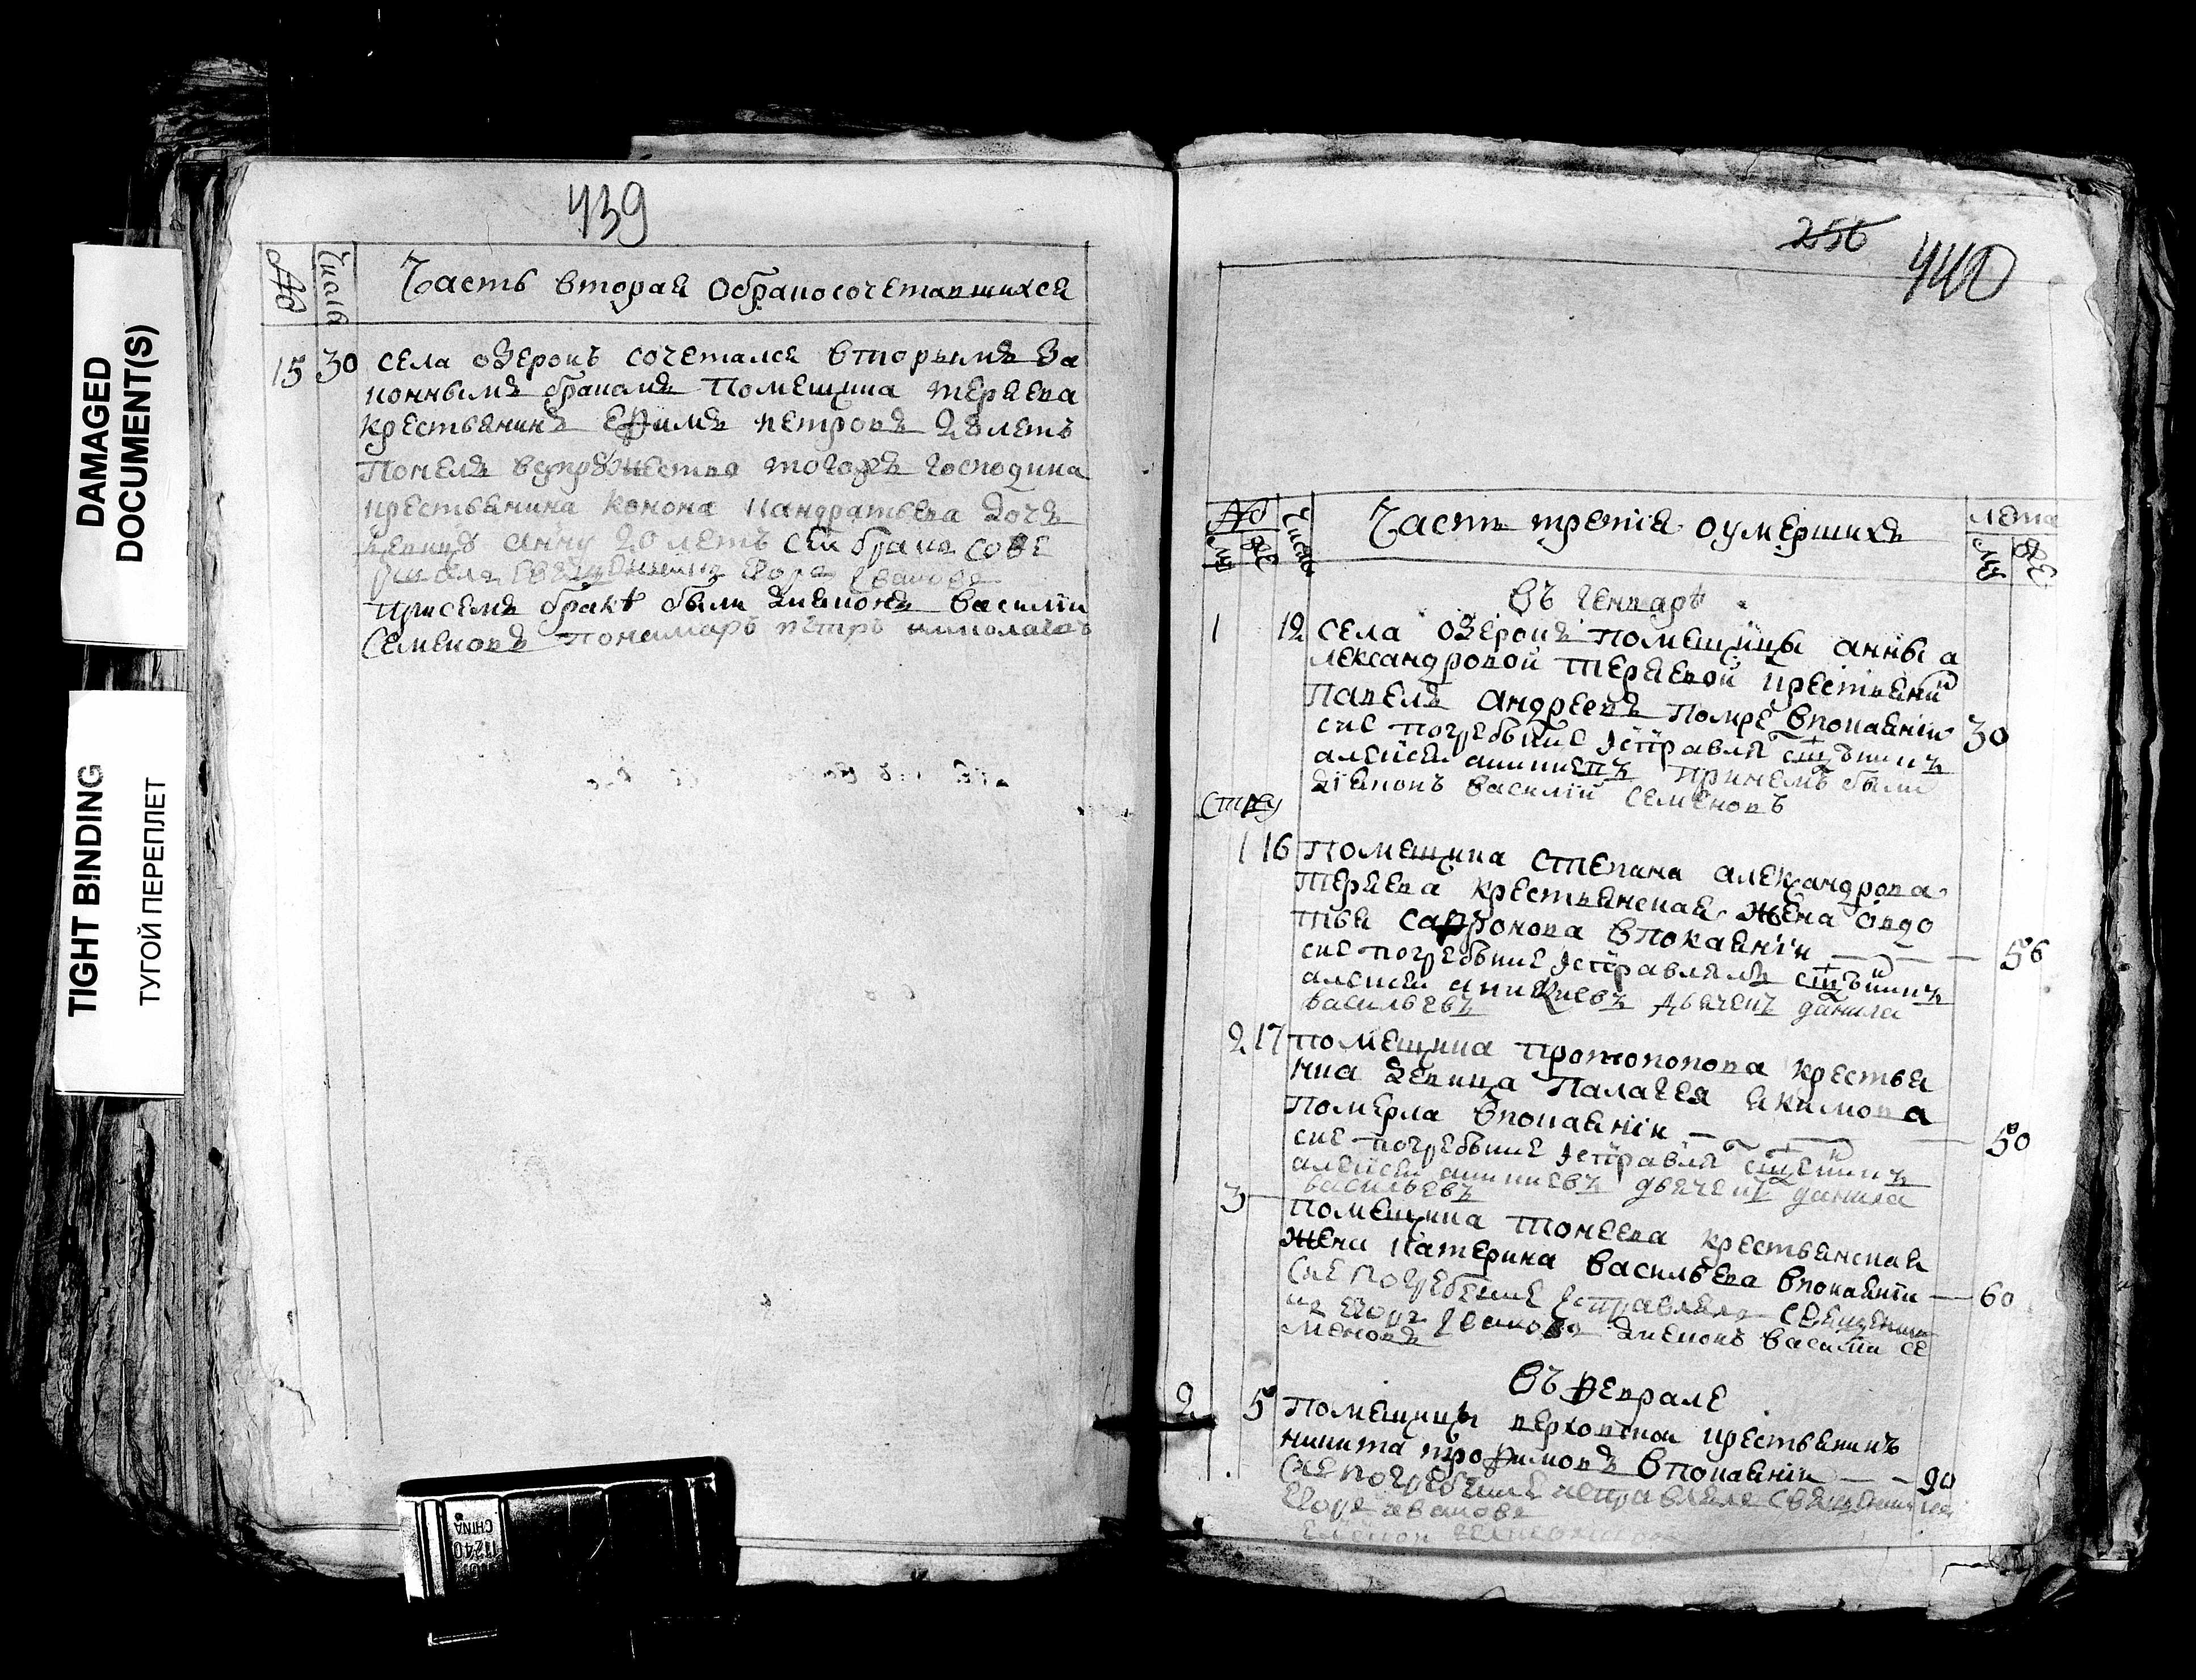 DAMAGED
DOCUMENT(S)
TIGHT BINDING
ТУГОЙ ПЕРЕПЛЕТ
439
№
Число
Часть вторая обракосочетавшихся
15 30 села озерокъ сочетался вторымъ за
коннымъ бракомъ помещика теряева
крестьянинъ ефимъ петровъ 28 летъ
понелъ всупружество тогожъ господина
крестьянина конона кандратьева дочь
девицу анну 20 летъ сей бракъ сове
ршалъ священникъ Егоръ Ивановъ
присемъ бракѣ были диаконъ василии
Семеновъ пономарь петръ николаевъ
256
440
№
Число
Часть третия оумершихъ
лета
му же
му же
Въ генварѣ
1 12 села озерокъ помещицы анны а
лександровой теряевой крестьянинъ
павелъ андреевъ помре впокаянiи 30
сие погребение исправлялъ
алексеи аникиевъ принемъ были
дiаконъ василiй семеновъ
1 16 помещика степана александрова
теряева крестьянская жена овдо
тья сафронова впокаянiи 56
сие погребение исправлялъ
алексеи аникиевъ дьячекъ данила
васильевъ
2 17 помещика протопопова крестья
нка девица палагея якимова
померла впокаянiи 50
сие погребение исправлялъ
алексеи аникиевъ дьячекъ данила
васильевъ
3 помещика тонеева крестьянская
жена катерина васильева впокаянiи 60
Сие погребение исправлялъ священни
къ Егоръ Ивановъ диаконъ василии се
меновъ
Въ феврале
2 5 помещицы верховской крестьянинъ
никита трофимовъ впокаянiи 90
Сие погребение исправлялъ священникъ
Егоръ ивановъ
CHINA
11240